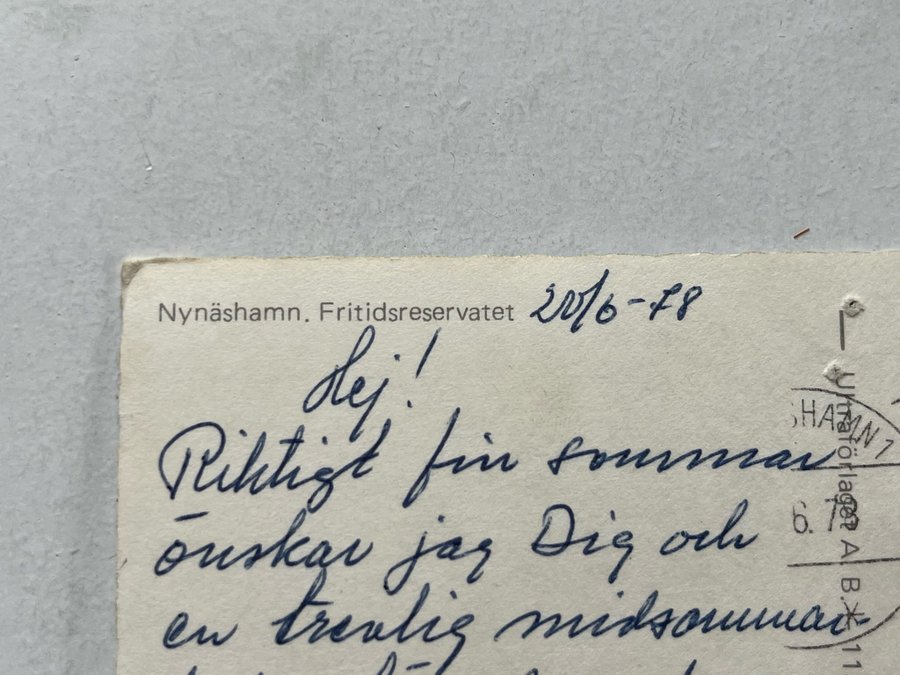 Nynäshamn. Fritidsreservatet 20/6-78
Hej!
Riktigt fin sommar
önskar jag Dig och
en trevlig midsommar-
HAMN 1
6.78
Ultraförlaget A.B.
11